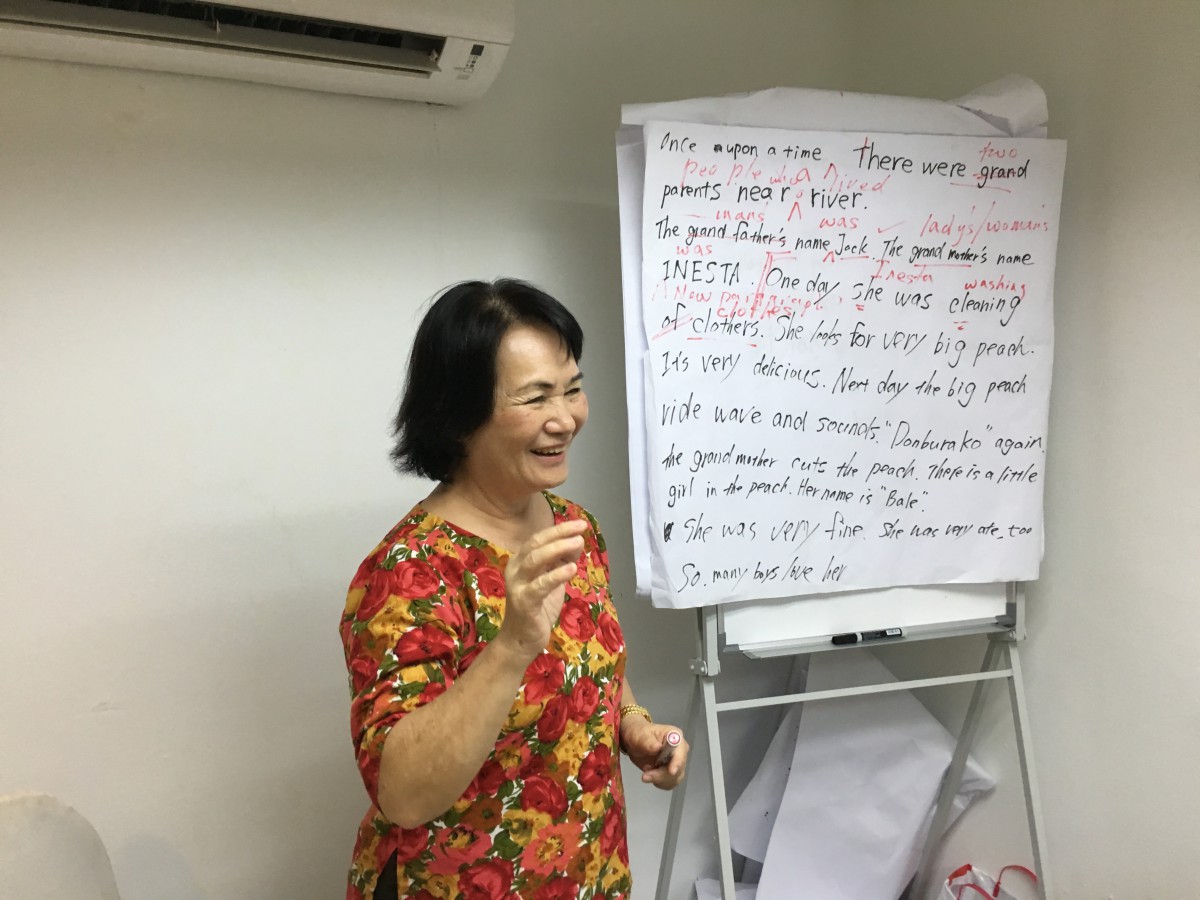 Once upon a time There were two grand
people who lived
parents near a river.
man's was lady's/woman's
The grand father's name Jack. The grand mother's name
was Inesta washing
INESTA. One day she was cleaning
New paragraph clothes
of clothers. She looks for very big peach.
It's very delicious. Next day the big peach
ride wave and sounds. "Donburako" again.
the grand mother cuts the peach. There is a little
girl in the peach. Her name is "Bale".
She was very fine. She was very ate, too
So. many boys love her